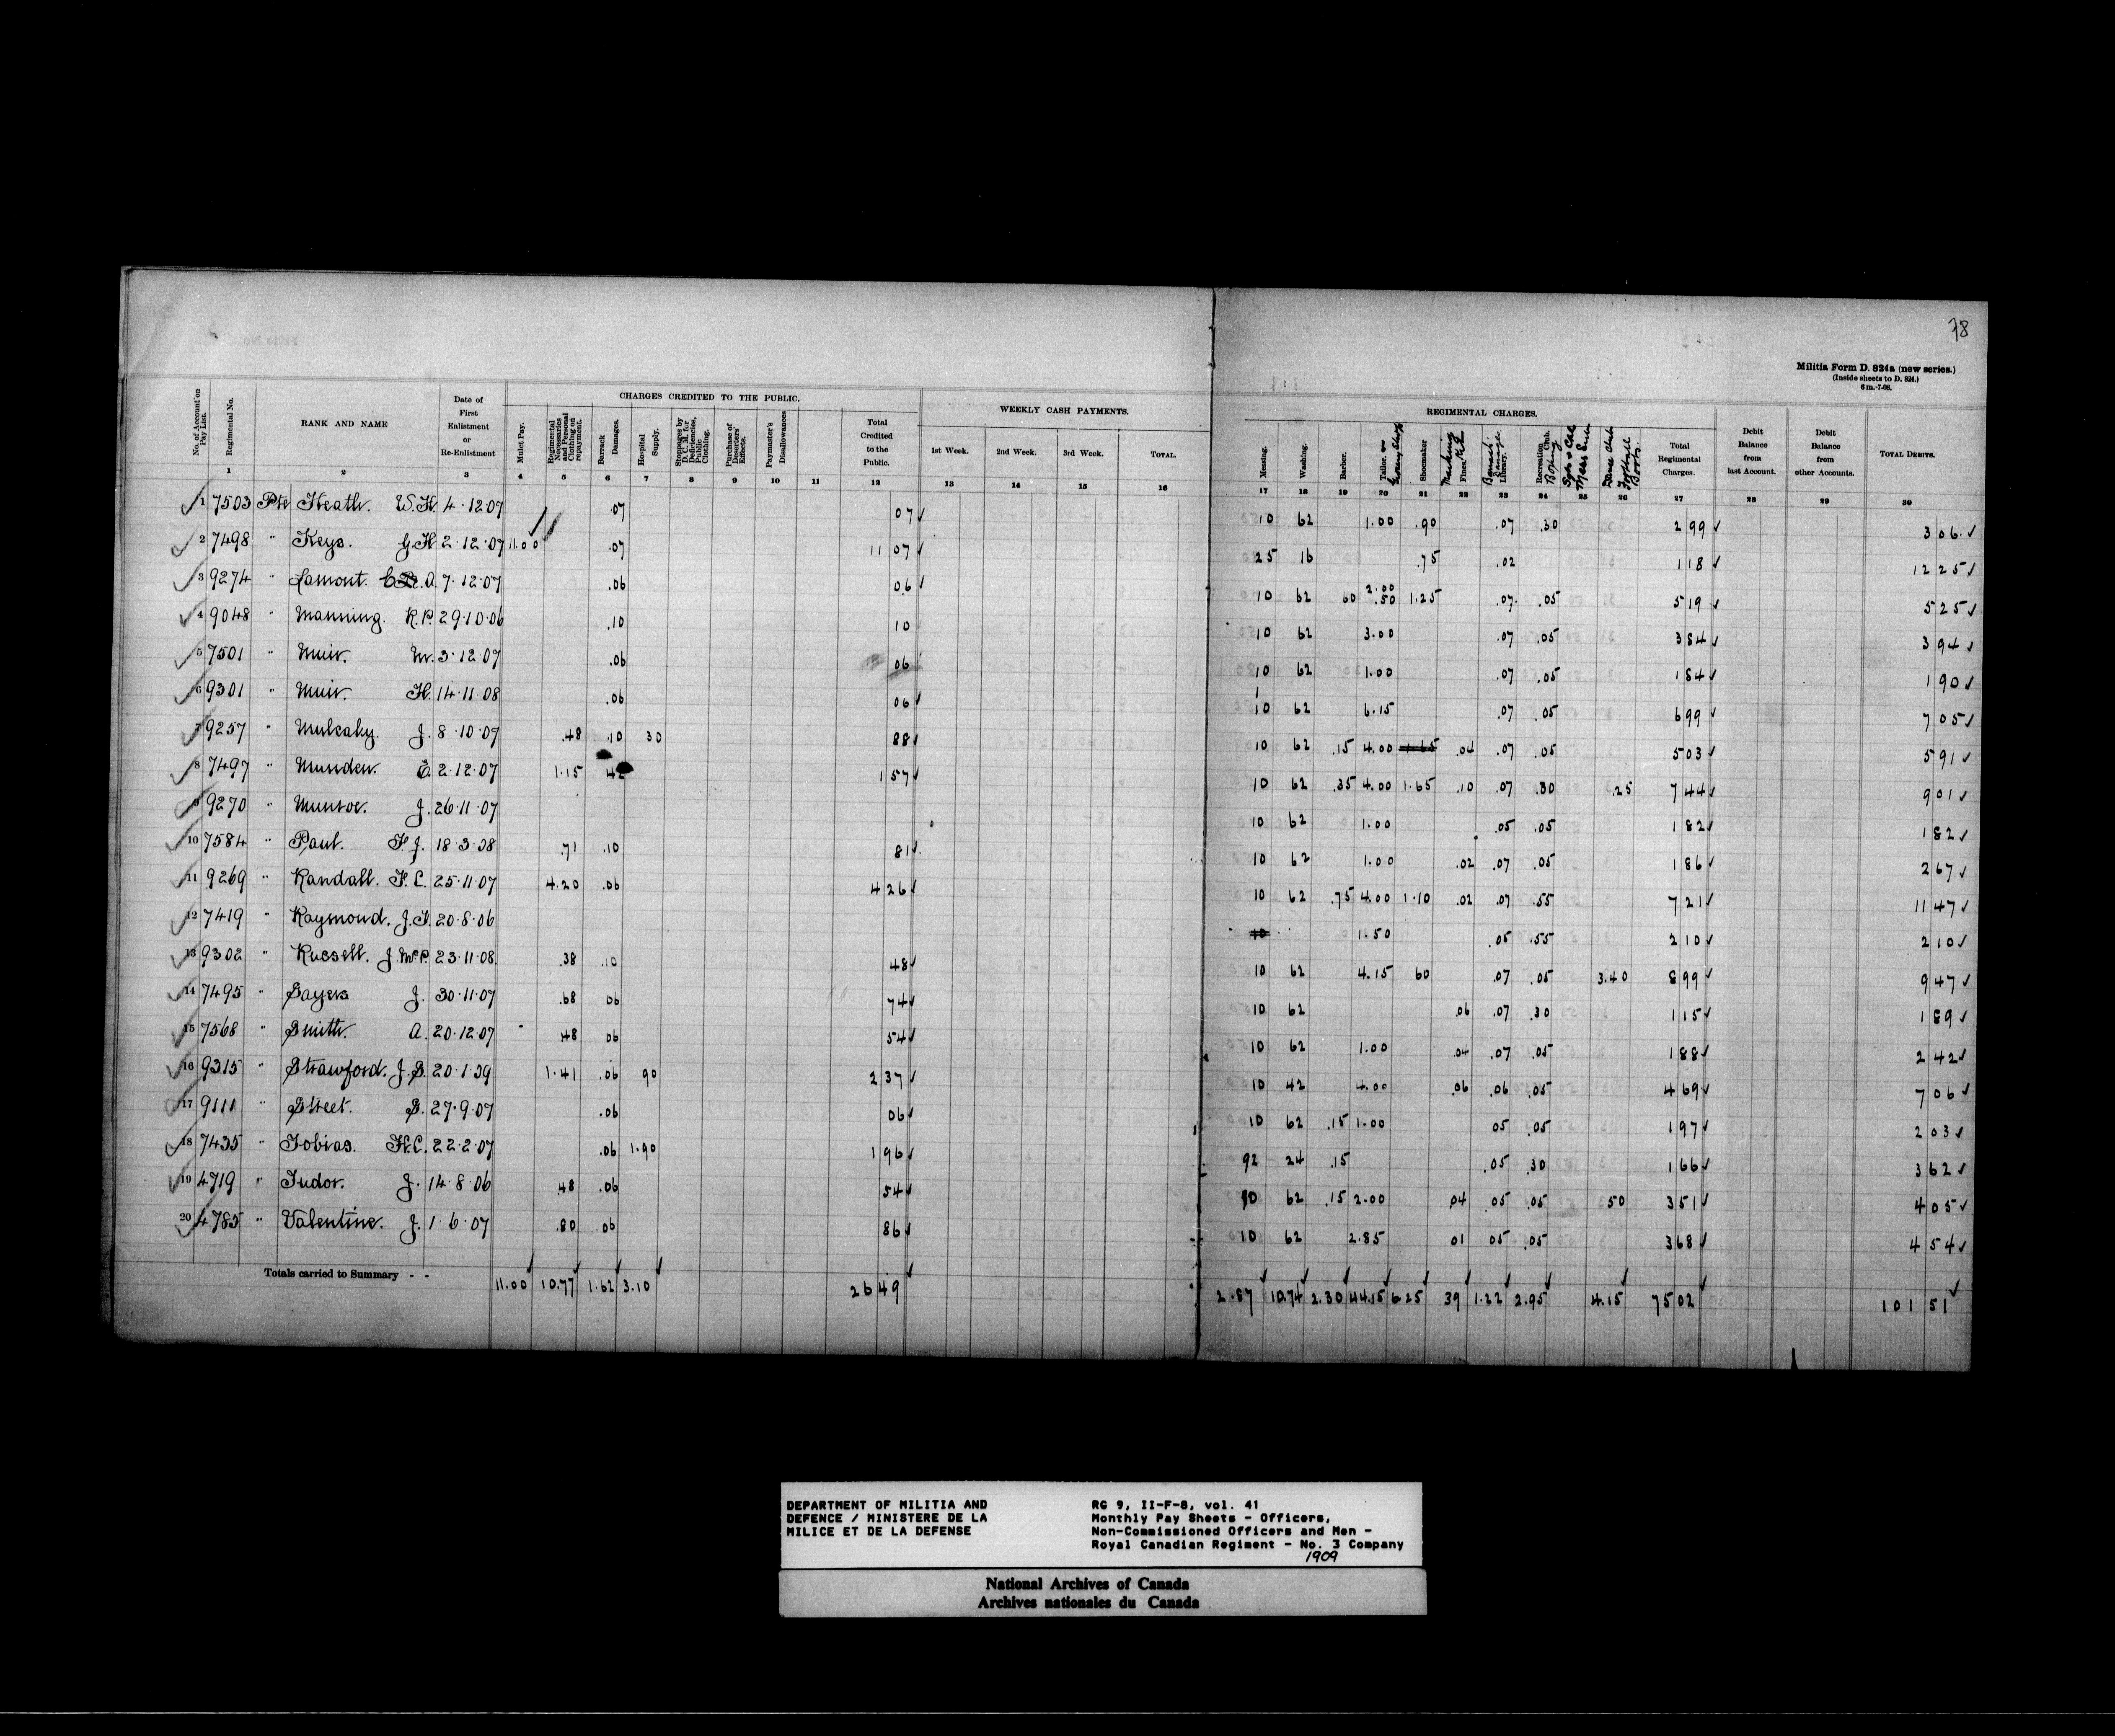 78
Militia Form D. 824a (new series.)
(Inside sheets to D. 824.)
6 m.-7-08.
CHARGES CREDITED TO THE PUBLIC. WEEKLY CASH PAYMENTS. REGIMENTAL CHARGES.
No. of Account on Pay List. Regimental No. RANK AND NAME Date of First Enlistment or Re-Enlistment Mulct Pay. Regimental Necessaries and Personal Clothing on repayment. Barrack Damages. Hospital Supply. Stoppages by D. C. M. for Deficiencies, Public Clothing. Purchase of Deserters' Effects. Paymaster's Disallowances Total Credited to the Public. 1st Week. 2nd Week. 3rd Week. TOTAL. Messing. Washing. Barber. Tailor. Shoemaker Marking Fines. Library. Recreation Club. Boxing Dance Club Football Boots. Total Regimental Charges. Debit Balance from last Account. Debit Balance from other Accounts. TOTAL DEBITS.
1 2 3 4 5 6 7 8 9 10 11 12 13 14 15 16 17 18 19 20 21 22 23 24 25 26 27 28 29 30
1 7503 Pte Heath. W.H. 4.12.07 .07 07 10 62 1.00 .90 .07 .30 2 99 3 06
2 7498 " Keys. G.H. 2.12.07 11.00 .07 11 07 25 16 .75 .02 1 18 12 25
3 9274 " Lamont. A. 7.12.07 .06 06 10 62 60 2.00 .50 1.25 .07 .05 5 19 5 25
4 9048 " Manning. R.P. 29.10.06 .10 10 10 62 3.00 .07 .05 3 84 3 94
5 7501 " Muir. W. 3.12.07 .06 06 10 62 1.00 .07 .05 1 84 1 90
6 9301 " Muir. H. 14.11.08 .06 06 10 62 6.15 .07 .05 6 99 7 05
7 9257 " Mulcahy. J. 8.10.07 .48 .10 30 88 10 62 .15 4.00 1.65 .04 .07 .05 5 03 5 91
8 7497 " Munden. E. 2.12.07 1.15 42 1 57 10 62 .35 4.00 1.65 .10 .07 .30 .25 7 44 9 01
9 9270 " Munroe. J. 26.11.07 10 62 1.00 .05 .05 1 82 1 82
10 7584 " Paul. F.J. 18.3.08 .71 .10 81 10 62 1.00 .02 .07 .05 1 86 2 67
11 9269 " Randall. F.C. 25.11.07 4.20 .06 4 26 10 62 .75 4.00 1.10 .02 .07 .55 7 21 11 47
12 7419 " Raymond. J.F. 20.8.06 10 1.50 .05 .55 2 10 2 10
13 9302 " Russell. J.McP. 23.11.08. .38 .10 48 10 62 4.15 60 .07 .05 3.40 8 99 9 47
14 7495 " Sayers J. 30.11.07 .68 06 74 10 62 .06 .07 .30 1 15 1 89
15 7568 " Smith. A. 20.12.07 .48 06 54 10 62 1.00 .04 .07 .05 1 88 2 42
16 9315 " Strawford. J.S. 20.1.09 1.41 .06 90 2 37 10 42 4.00 .06 .06 .05 4 69 7 06
17 9111 " Street. S. 27.9.07 .06 06 10 62 .15 1.00 05 .05 1 97 2 03
18 7435 " Tobias. H.C. 22.2.07 .06 1.90 1 96 92 24 .15 .05 .30 1 66 3 62
19 4719 " Tudor. J. 14.8.06 .48 .06 54 10 62 .15 2.00 04 .05 .05 50 3 51 4 05
20 4785 " Valentine. J. 1.6.07 .80 .06 86 10 62 2.85 01 05 .05 3 68 4 54
Totals carried to Summary - - 11.00 10.77 1.62 3.10 26 49 2.87 10.74 2.30 44.15 6.25 39 1.22 2.95 4.15 75 02 101 51
DEPARTMENT OF MILITIA AND
DEFENCE / MINISTERE DE LA
MILICE ET DE LA DEFENSE
RG 9, II-F-8, vol. 41
Monthly Pay Sheets - Officers,
Non-Commissioned Officers and Men -
Royal Canadian Regiment - No. 3 Company
1909
National Archives of Canada
Archives nationales du Canada